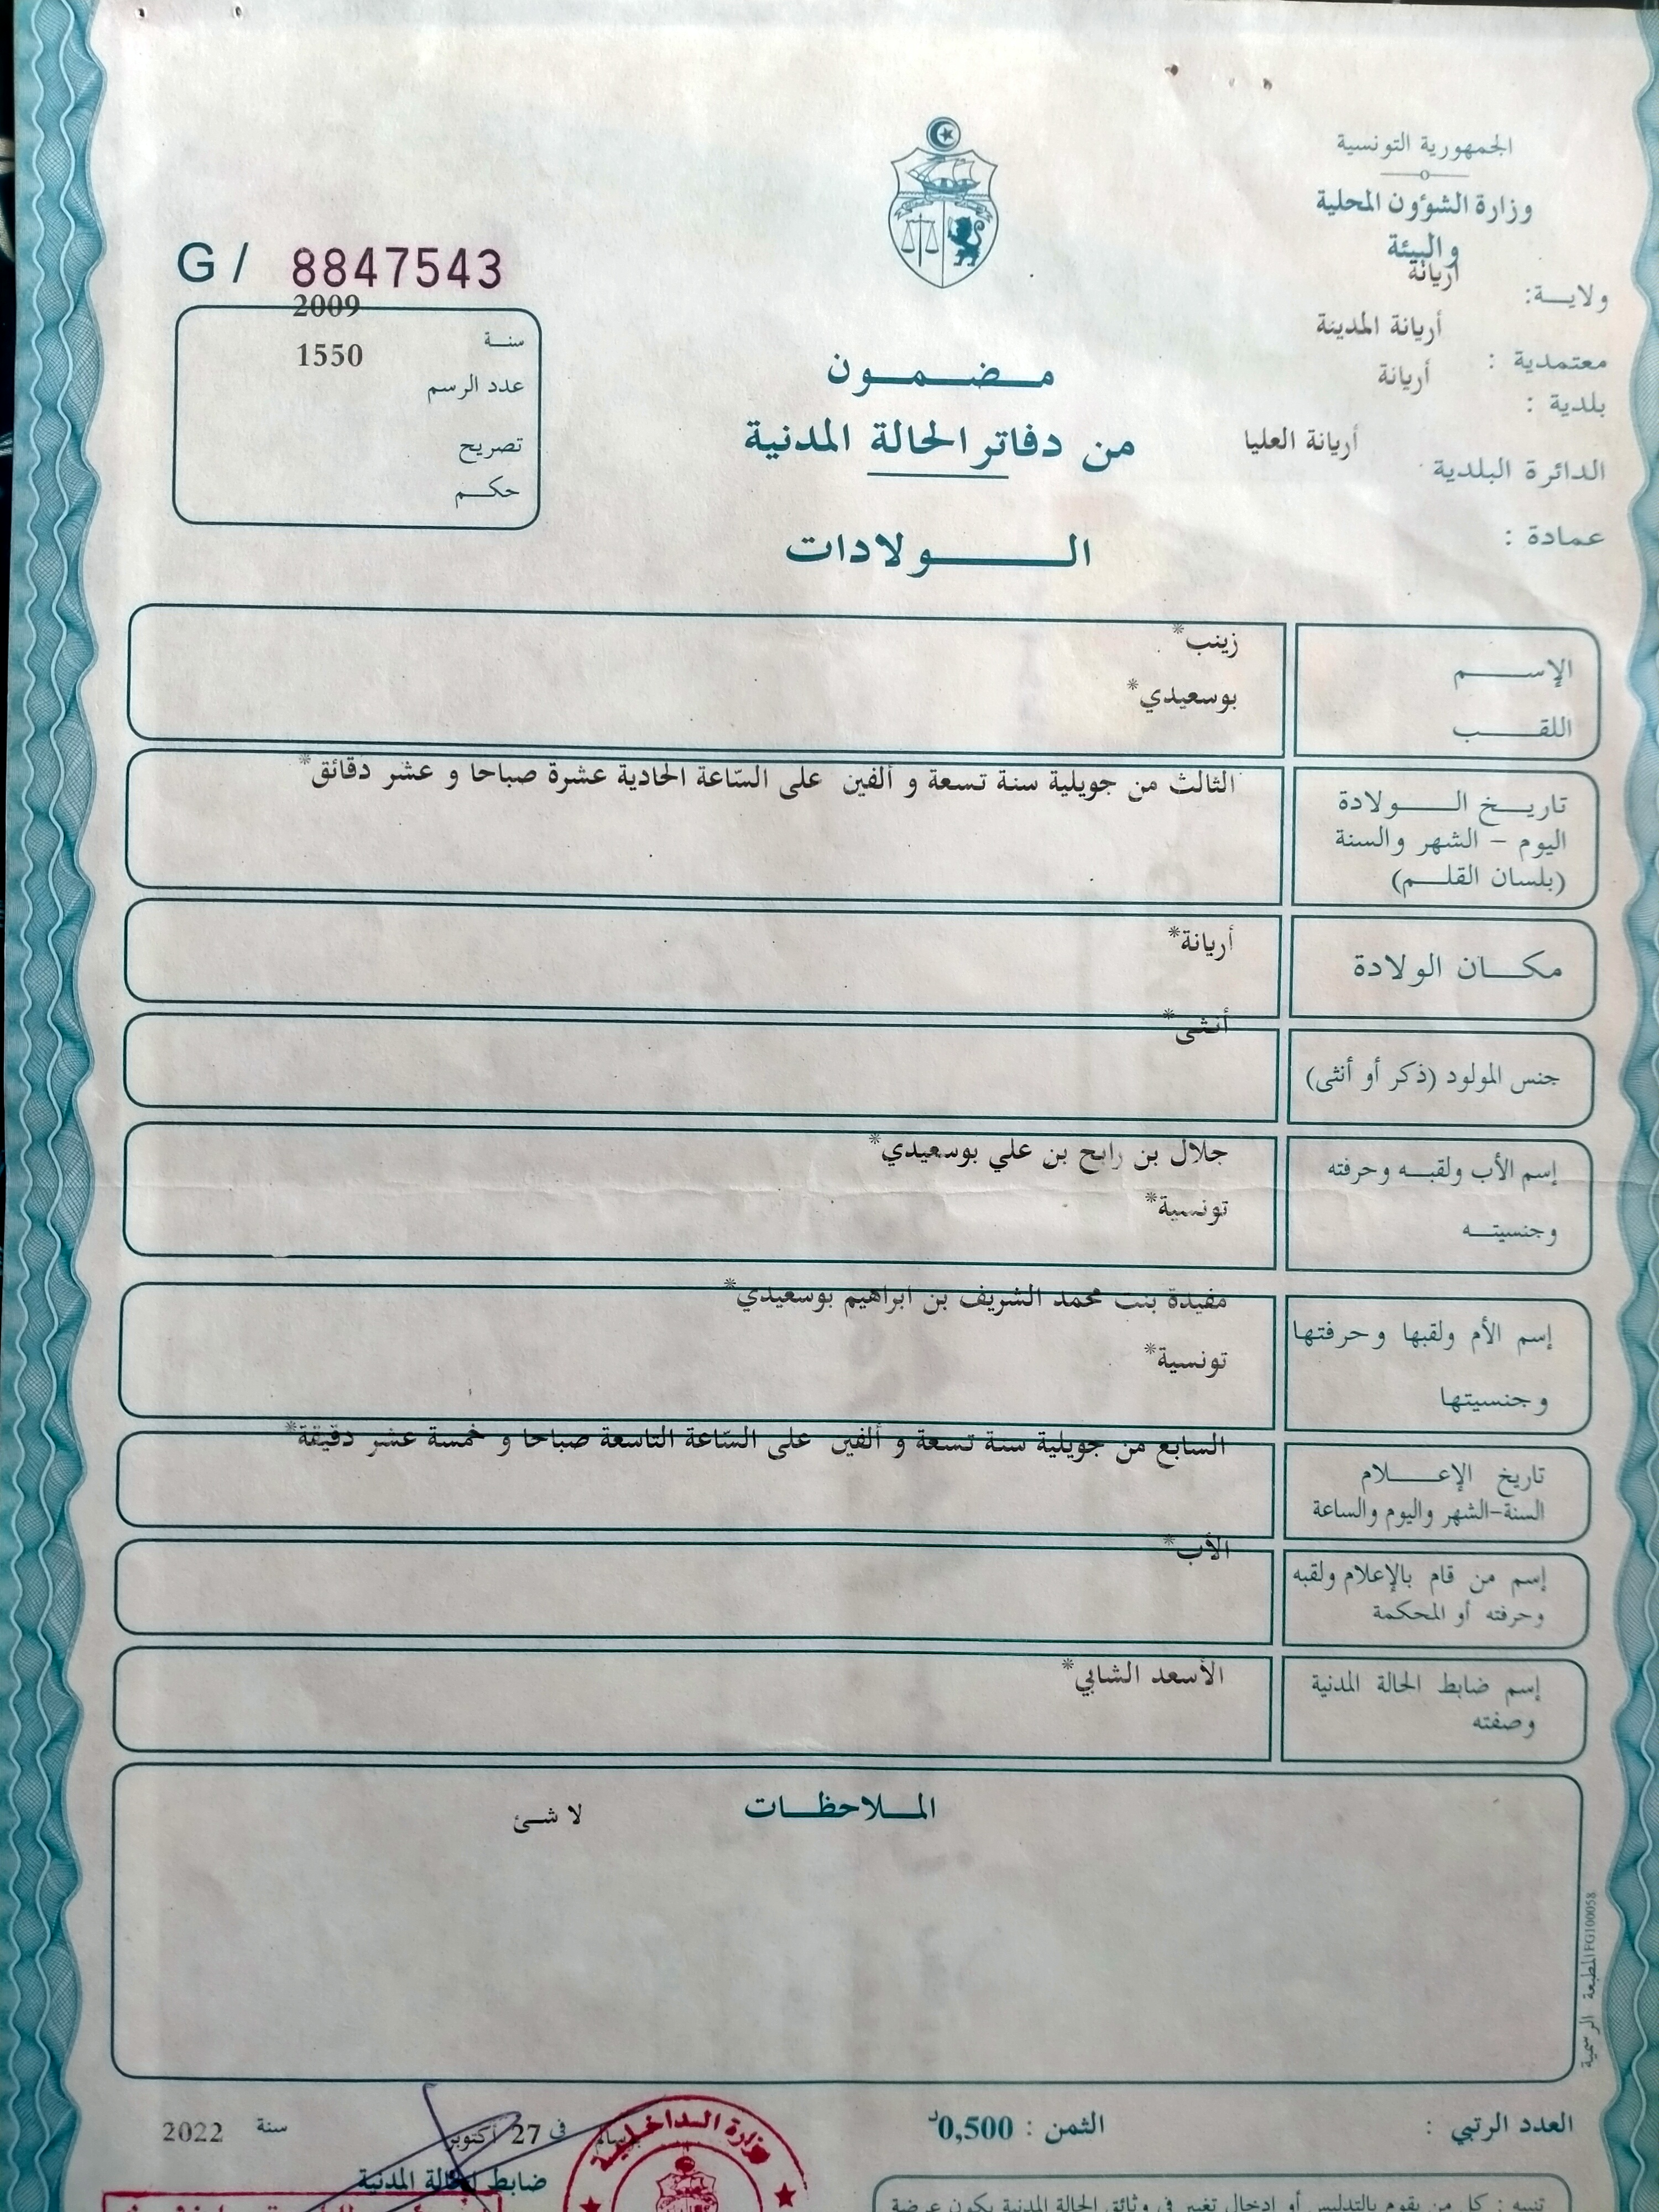 الجمهورية التونسية
وزارة الشؤون المحلية
والبيئة
ولاية: أريانة
معتمدية : أريانة المدينة
بلدية : أريانة
الدائرة البلدية أريانة العليا
عمادة :
G / 8847543
سنة 2009
عدد الرسم 1550
تصريح
حكم
مضمون
من دفاتر الحالة المدنية
الولادات
الإسم زينب*
اللقب بوسعيدي*
تاريخ الولادة الثالث من جويلية سنة تسعة و ألفين على السّاعة الحادية عشرة صباحا و عشر دقائق*
اليوم - الشهر والسنة
(بلسان القلم)
مكان الولادة أريانة*
جنس المولود (ذكر أو أنثى) أنثى*
إسم الأب ولقبه وحرفته جلال بن رابح بن علي بوسعيدي*
وجنسيته تونسية*
إسم الأم ولقبها وحرفتها مفيدة بنت محمد الشريف بن ابراهيم بوسعيدي*
وجنسيتها تونسية*
تاريخ الإعلام السابع من جويلية سنة تسعة و ألفين على السّاعة التاسعة صباحا و خمسة عشر دقيقة*
السنة-الشهر واليوم والساعة
إسم من قام بالإعلام ولقبه الأب*
وحرفته أو المحكمة
إسم ضابط الحالة المدنية الأسعد الشابي*
وصفته
الملاحظات
لا شئ
المطبعة الرسمية FG100058
العدد الرتبي :
الثمن : 0,500د
في 27 أكتوبر سنة 2022
ضابط الحالة المدنية
وزارة الداخلية
تنبيه : كل من يقوم بالتدليس أو إدخال تغيير في وثائق الحالة المدنية يكون عرضة